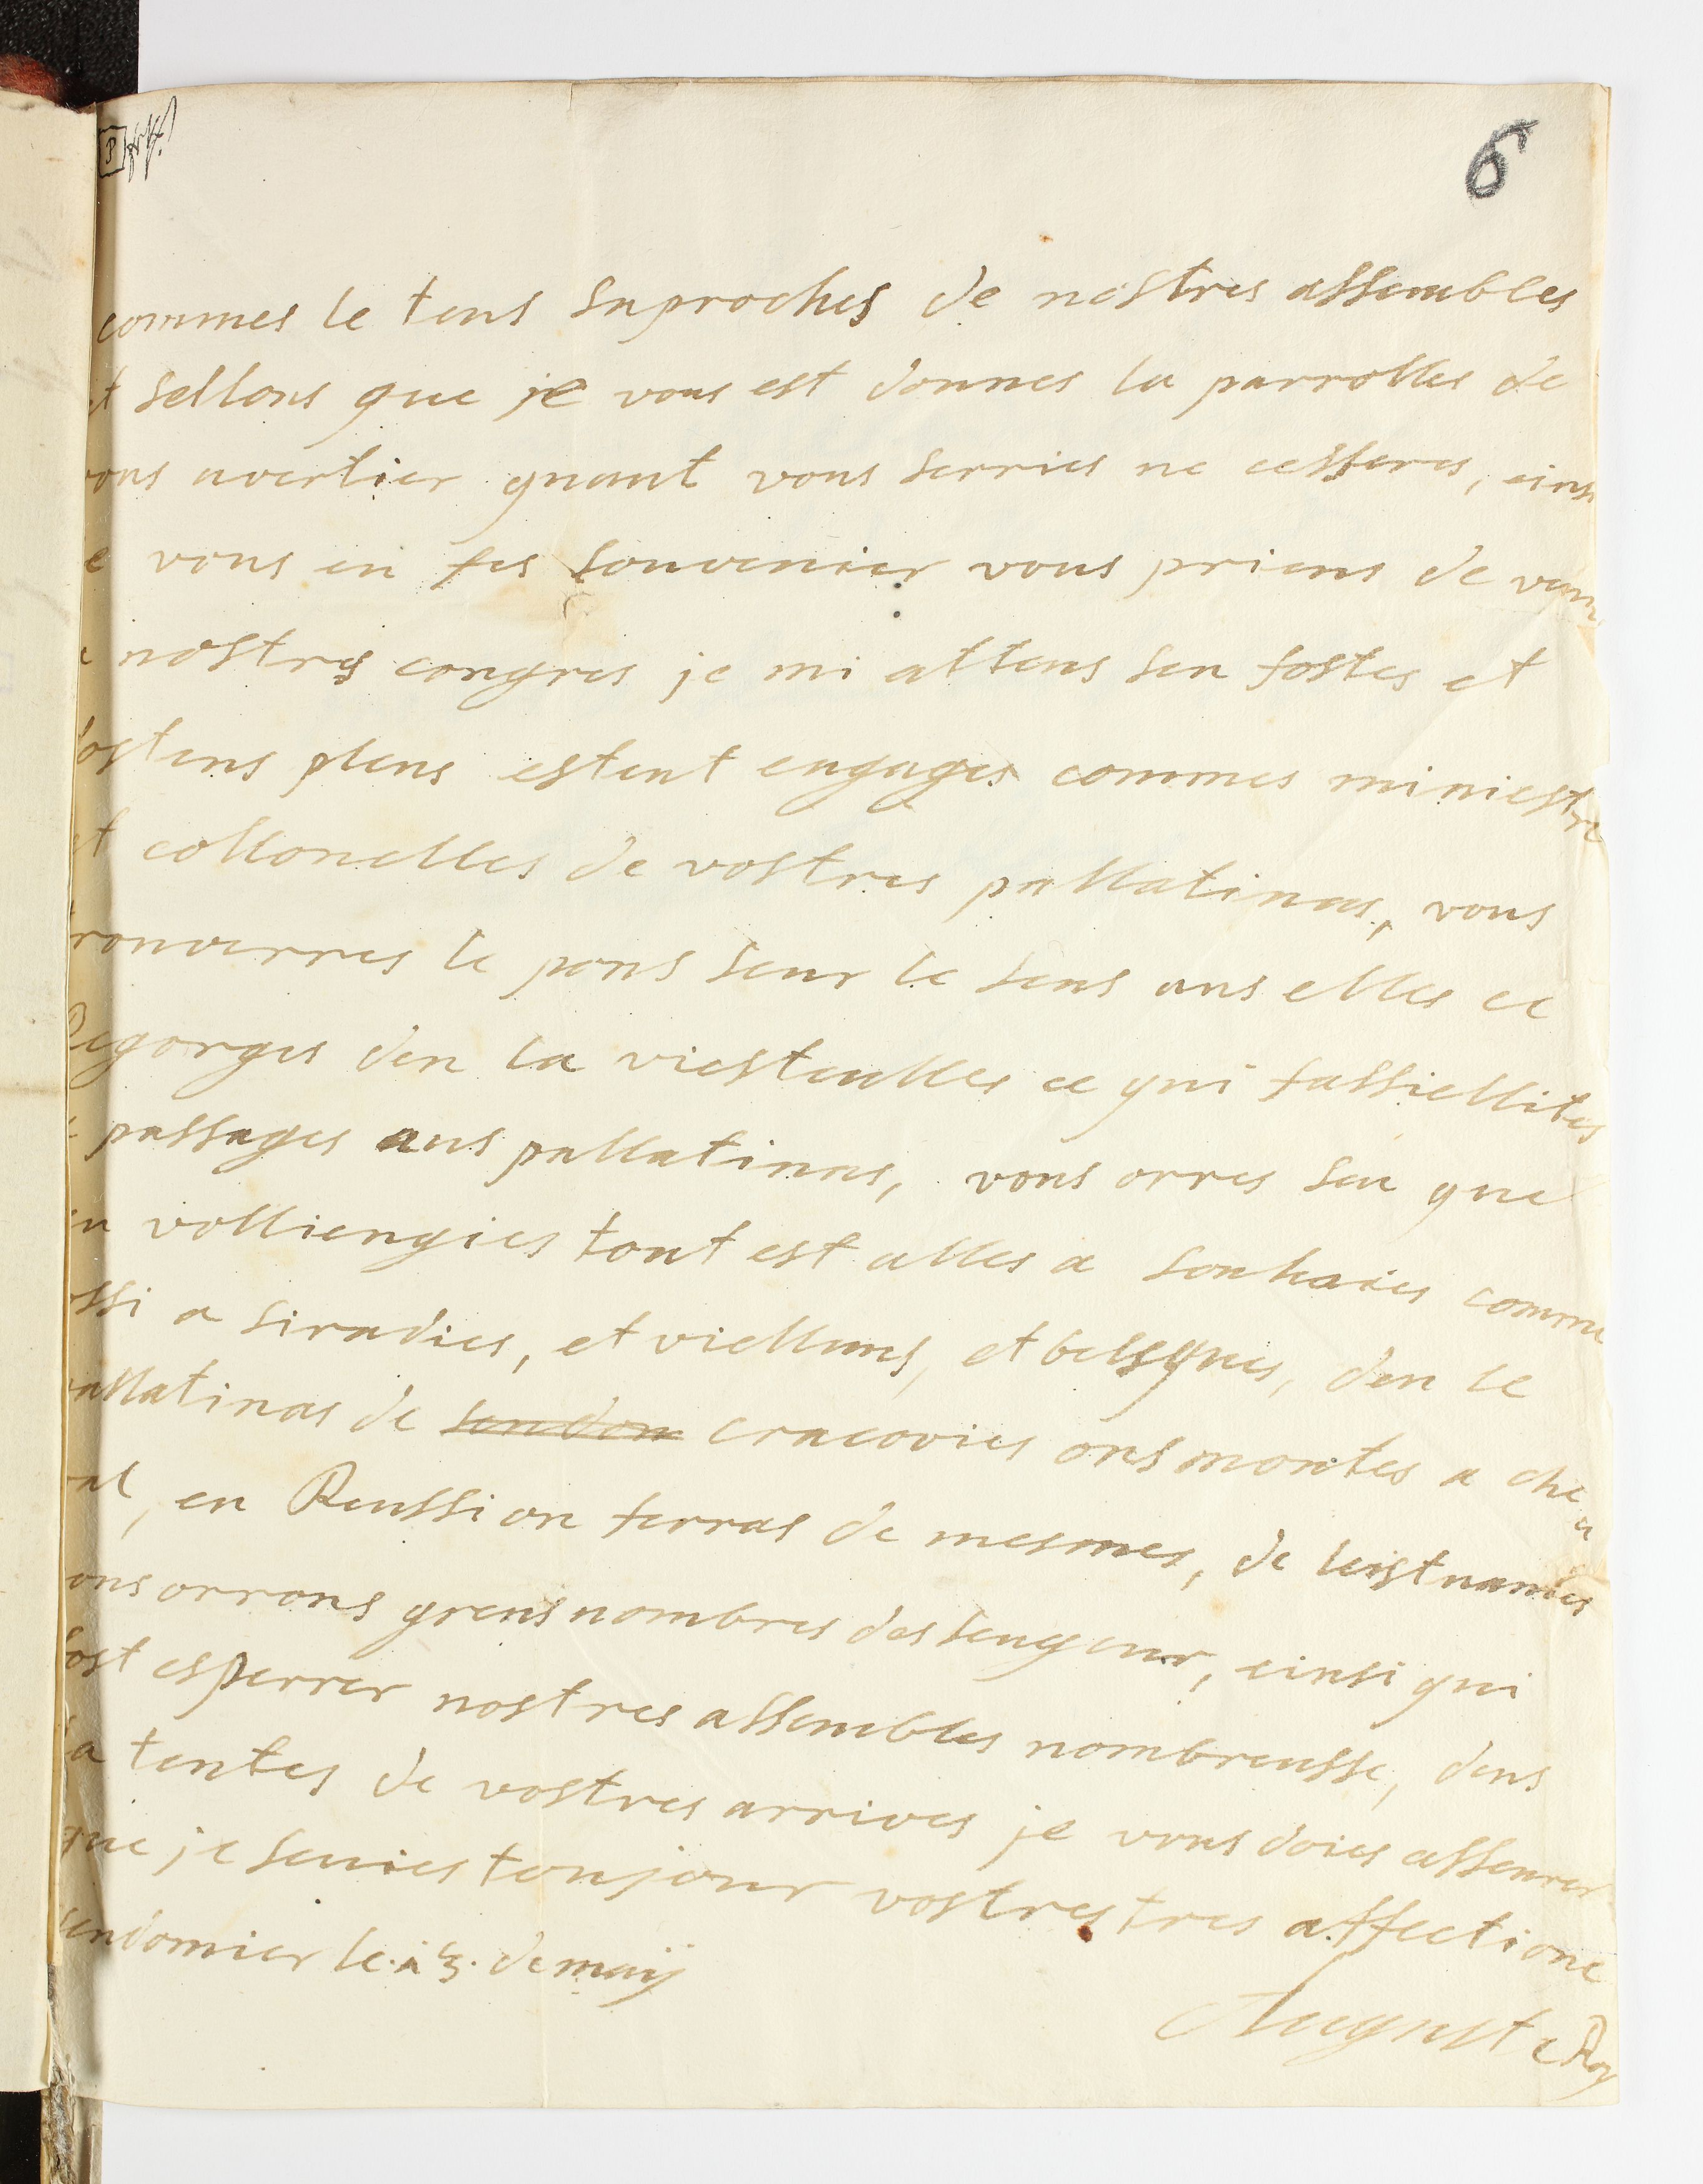 6
commes le tens saproches de nostres assembles
et sellons que je vous est donnes la parrolles de
vous avertier quant vous serries ne cesseres, einsi
je vous en fes souvenier vous priens de venir
a nostres congres je mi attens sen fostes et
dostens plens estent engages commes miniestre
et collonelles de vostres pallatinas, vous
trouverres le pons seur le sens ans elles ce
Degorges den la viesteulles ce qui fassiellites
le passages aus pallatinas, vous orres seu que
en volliengies tout est alles a souhaies comme
ossi a siradies, et viellums, et belsques, den le
pallatinas de sendom cracovies ons montes a che
val, en Reussi on ferras de mesmes, de leistuanies
ons orrons grens nombres des seugneur, einsi qui
fost esperrer nostres assembles nombreusse, dens
la tentes de vostres arrives je vous doies asseurer
que je seuies toujour vostres tres affectione
sendomier le 13. de maij
Auguste Roy